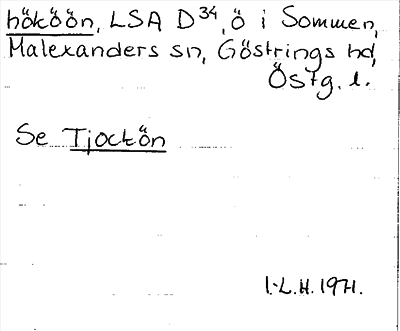 hököön, LSA D³⁴, ö i Sommen,
Malexanders sn, Göstrings hd,
Östg. l.
Se Tjockön
I.L.H. 1971.